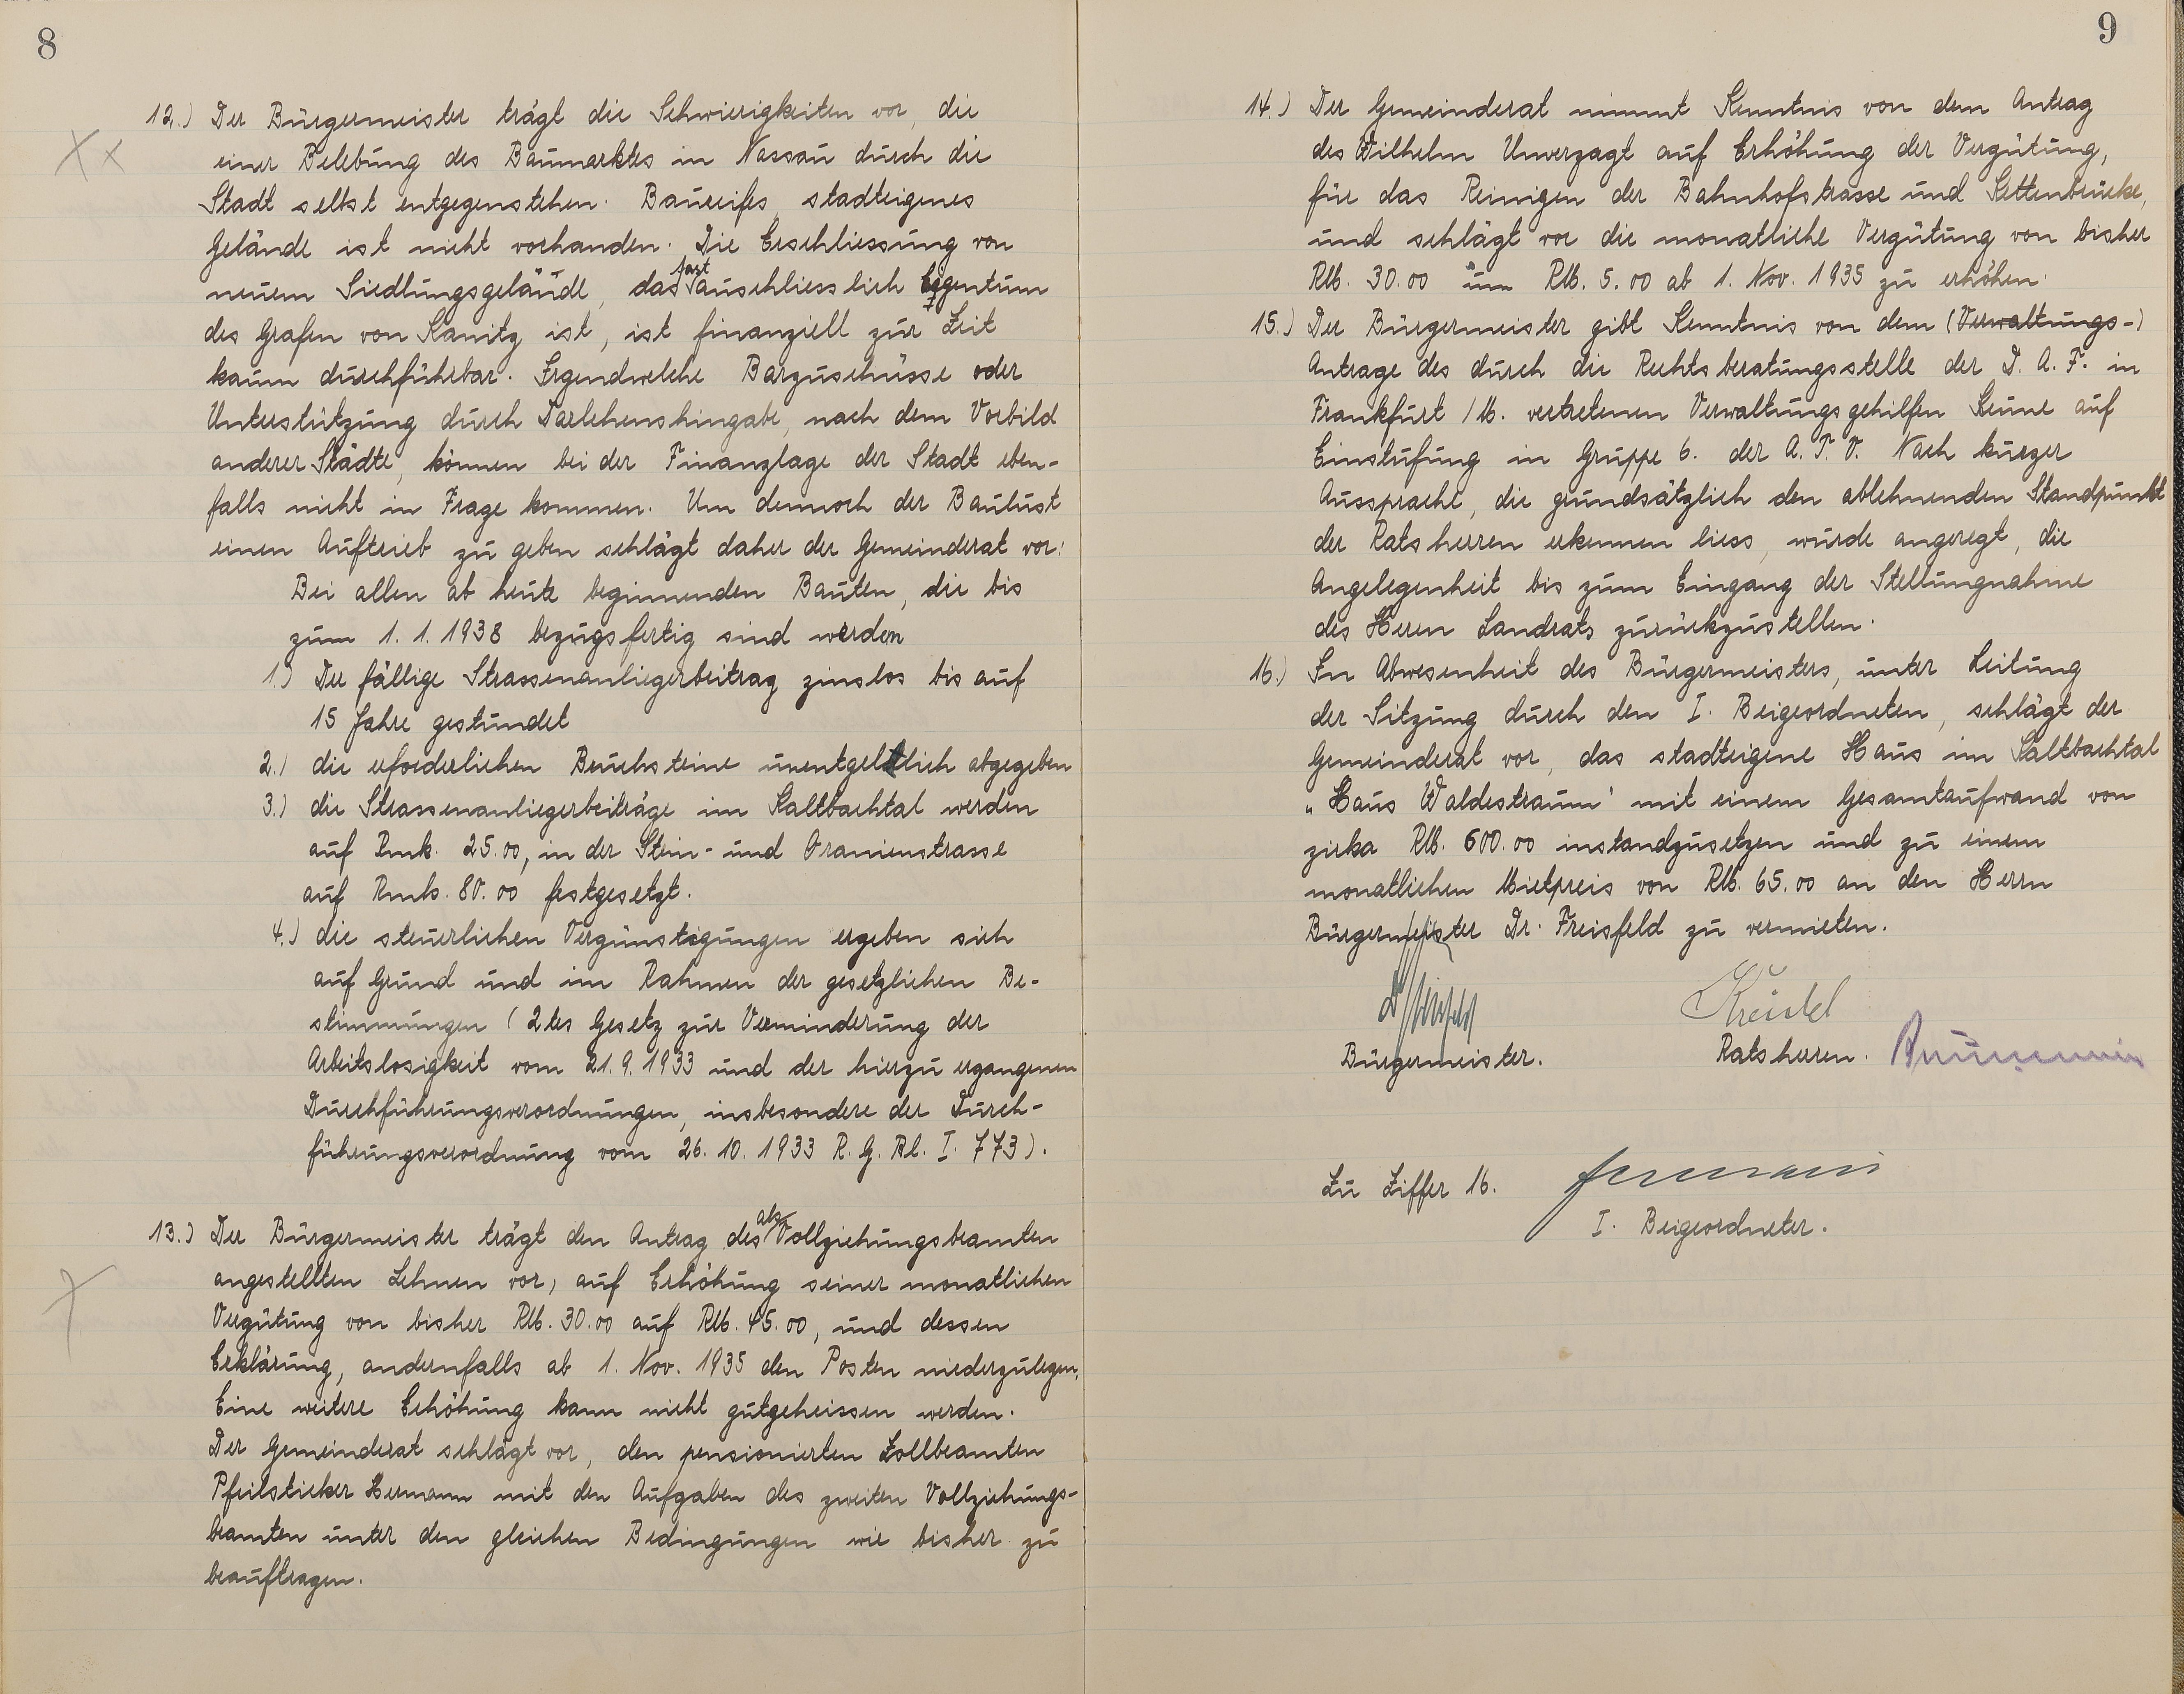 8
12.) Der Bürgermeister trägt die Schwierigkeiten vor, die
einer Belebung des Baumarktes in Nassau durch die
Stadt selbst entgegenstehen. Baureifes, stadteigenes
Gelände ist nicht vorhanden. Die Erschliessung von
neuem Siedlungsgelände, das fast auschliesslich Eigentum
des Grafen von Kanitz ist, ist finanziell zur Zeit
kaum durchführbar. Irgendwelche Barzuschüsse oder
Unterstützung durch Darlehenshingabe, nach dem Vorbild
anderer Städte, können bei der Finanzlage der Stadt eben-
falls nicht in Frage kommen. Um dennoch der Baulust
einen Auftrieb zu geben schlägt daher der Gemeinderat vor:
Bei allen ab heute beginnenden Bauten, die bis
zum 1. 1. 1938 bezugsfertig sind werden
1.) Der fällige Strassenanliegerbeitrag zinslos bis auf
15 Jahre gestundet
2.) die erforderlichen Bruchsteine unentgeltlich abgegeben
3.) die Strassenanliegerbeiträge im Kaltbachtal werden
auf Rmk. 25.00, in der Stein- und Oranienstrasse
auf Rmk. 80.00 festgesetzt.
4.) die steuerlichen Vergünstigungen ergeben sich
auf Grund und im Rahmen der gesetzlichen Be-
stimmungen (2tes Gesetz zur Verminderung der
Arbeitslosigkeit vom 21. 9. 1933 und der hierzu ergangenen
Durchführungsverordnungen, insbesondere der Durch-
führungsverordnung vom 26. 10. 1933 R. G. Bl. I. 773).
13.) Der Bürgermeister trägt den Antrag des als Vollziehungsbeamten
angestellten Lehnen vor, auf Erhöhung seiner monatlichen
Vergütung von bisher RM. 30.00 auf RM. 45.00, und dessen
Erklärung, andernfalls ab 1. Nov. 1935 den Posten niederzulegen.
Eine weitere Erhöhung kann nicht gutgeheissen werden.
Der Gemeinderat schlägt vor, den pensionierten Zollbeamten
Pfeilsticker Hermann mit den Aufgaben des zweiten Vollziehungs-
beamten unter den gleichen Bedingungen wie bisher zu
beauftragen.
9
14.) Der Gemeinderat nimmt Kenntnis von dem Antrag
des Wilhelm Unverzagt auf Erhöhung der Vergütung,
für das Reinigen der Bahnhofstrasse und Kettenbrücke,
und schlägt vor die monatliche Vergütung von bisher
RM. 30.00 um RM. 5.00 ab 1. Nov. 1935 zu erhöhen.
15.) Der Bürgermeister gibt Kenntnis von dem (Verwaltungs-)
Antrage des durch die Rechtsberatungsstelle der D. A. F. in
Frankfurt /M. vertretenen Verwaltungsgehilfen Keune auf
Einstufung in Gruppe 6. der A. T. O. Nach kurzer
Aussprache, die grundsätzlich den ablehnenden Standpunkt
der Ratsherren erkennen liess, wurde angeregt, die
Angelegenheit bis zum Eingang der Stellungnahme
des Herrn Landrats zurückzustellen.
16.) In Abwesenheit des Bürgermeisters, unter Leitung
der Sitzung durch den I. Beigeordneten, schlägt der
Gemeinderat vor, das stadteigene Haus im Kaltbachtal
„Haus Waldestraum" mit einem Gesamtaufwand von
zirka RM. 600.00 instandzusetzen und zu einem
monatlichen Mietpreis von RM. 65.00 an den Herrn
Bürgermeister Dr. Freisfeld zu vermieten.
Bürgermeister.
Ratsherren.
Zu Ziffer 16.
I. Beigeordneter.